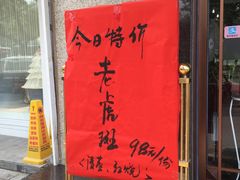 今日特价
老虎斑
98元/份
(清蒸、红烧)